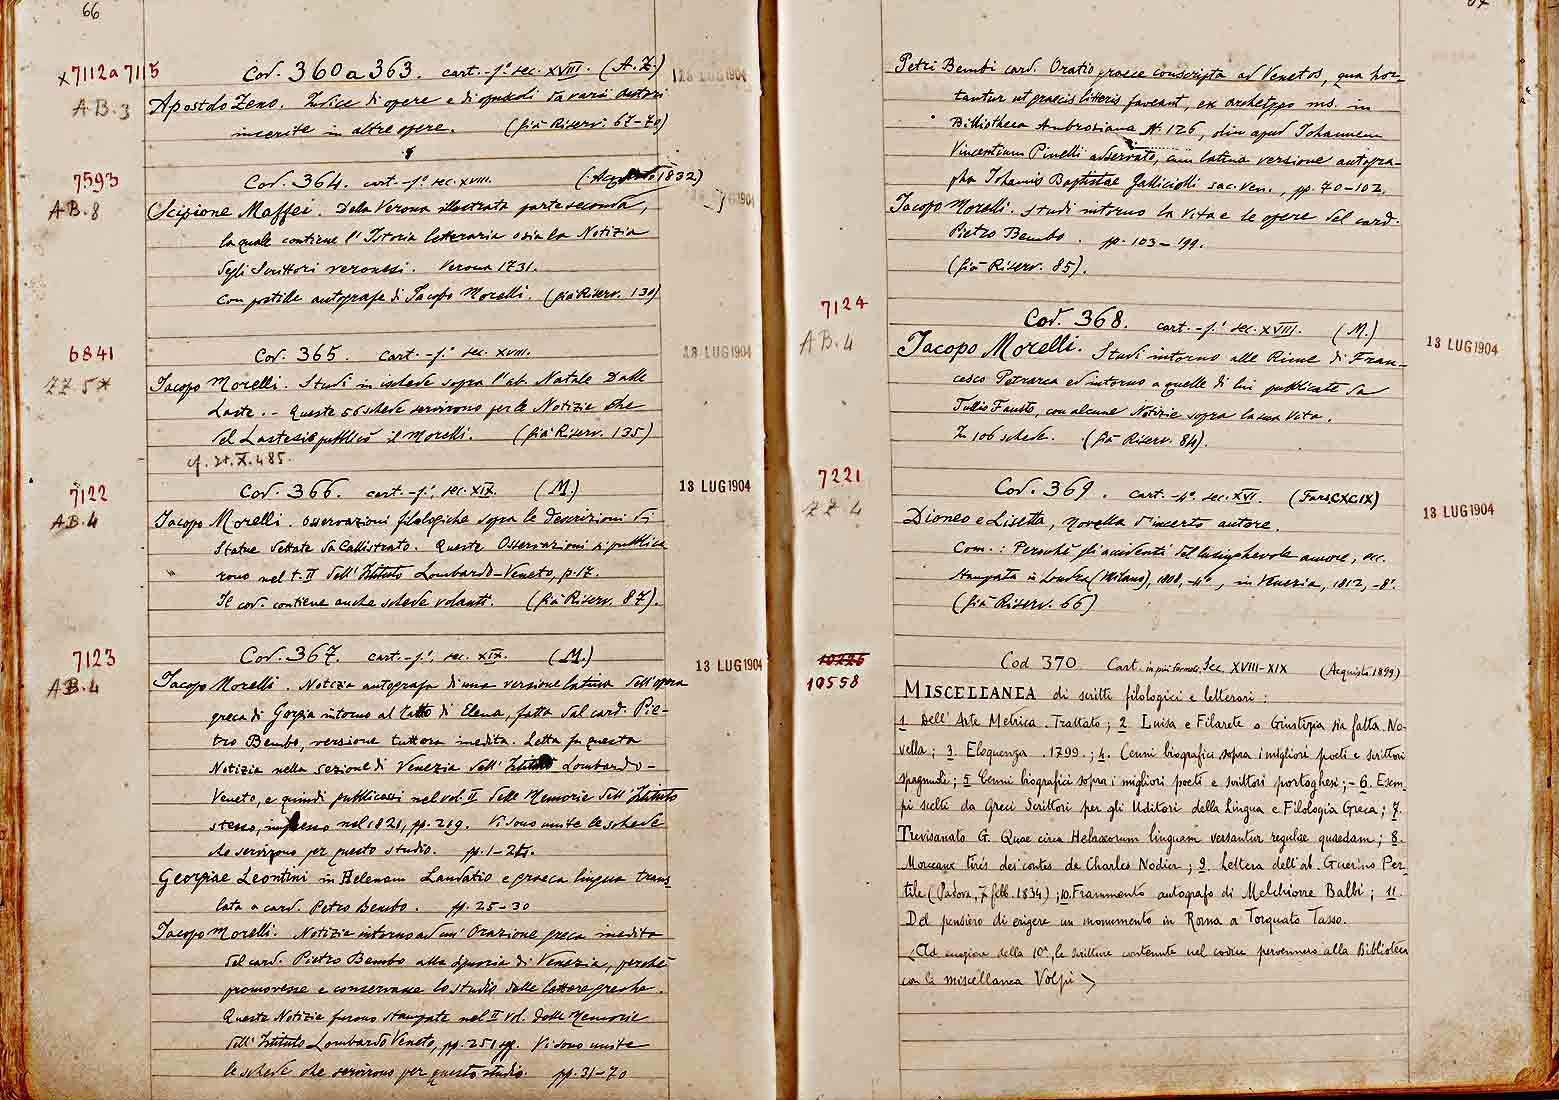 66
x 7112 a 7115
Cod. 360 a 363. cart. - f.º sec. XVIII. (A. Z.)
13 LUG 1904
AB. 3
Apostolo Zeno. Indice di opere e di opuscoli da varii autori
inserite in altre opere. (già Riserv. 67-70)
7593
Cod. 364. cart. - f.º sec. XVIII. (Acquisto 1832)
AB. 8
Scipione Maffei. Della Verona illustrata parte seconda,
la quale contiene l'Istoria letteraria o sia la Notizia
degli Scrittori veronesi. Verona 1731.
con postille autografe di Jacopo Morelli. (già Riserv. 130)
6841
Cod. 365. cart. - f.º sec. XVIII.
13 LUG 1904
ZZ 5*
Jacopo Morelli. Studi in ischede sopra l'ab. Natale Dalle
Laste. - Queste 56 schede servirono per le Notizie che
del Lastesio pubblicò il Morelli. (già Riserv. 135)
cf. It. X. 485.
7122
Cod. 366. cart. - f.º, sec. XIX. (M.)
13 LUG 1904
AB. 4
Jacopo Morelli. Osservazioni filologiche sopra le descrizioni di
Statue dettate da Callistrato. Queste Osservazioni si pubblica
rono nel t. II dell'Istituto Lombardo-Veneto, p. 17.
Il cod. contiene anche schede volanti. (già Riserv. 87).
7123
Cod. 367. cart. - f.º, sec. XIX. (M.)
13 LUG 1904
AB. 4
Jacopo Morelli. Notizia autografa di una versione latina dell'opera
greca di Gorgia intorno al ratto di Elena, fatta dal card. Pie-
tro Bembo, versione tuttora inedita. Letta fu questa
Notizia nella sezione di Venezia dell'Istituto Lombardo-
Veneto, e quindi pubblicossi nel vol. II delle Memorie dell'Istituto
stesso, impresso nel 1821, pp. 219. Vi sono unite le schede
che servirono per questo studio. pp. 1-24.
Georgiae Leontini in Helenam Laudatio e graeca lingua trans
lata a card. Petro Bembo. pp. 25-30
Jacopo Morelli. Notizie intorno ad un'Orazione greca inedita
del card. Pietro Bembo alla signoria di Venezia, perchè
promovesse e conservasse lo studio delle lettere greche.
Queste Notizie furono stampate nel II vol. delle Memorie
dell'Istituto Lombardo Veneto, pp. 251 sg. Vi sono unite
le schede che servirono per questo studio. pp. 31-70
Petri Bembi card. Oratio graece conscripta ad Venetos, qua hor-
tantur ut graecis litteris faveant, ex archetypo ms. in
Bibliotheca Ambrosiana N. 126, olim apud Johannem
Vincentium Pinelli adservato, cum latina versione autogra-
pha Johannis Baptistae Galliciolli sac. Ven., pp. 70-102.
Jacopo Morelli. Studi intorno la vita e le opere del card.
Pietro Bembo. pp. 103-199.
(già Riserv. 85).
7124
Cod. 368. cart. - f.º sec. XVIII. (M.)
13 LUG 1904
AB. 4
Jacopo Morelli. Studi intorno alle Rime di Fran-
cesco Petrarca ed intorno a quelle di lui pubblicate da
Tullio Fausto, con alcune Notizie sopra la sua vita.
In 106 schede. (già Riserv. 84).
7221
Cod. 369. cart. - 4º. sec. XVI. (Fars. CXCIX)
13 LUG 1904
ZZ 4
Dioneo e Lisetta, novella d'incerto autore.
Com.: Perchè gli accidenti del lusinghevole amore, ecc.
stampata in Londra (Milano), 1808, -4º, in Venezia, 1812, -8º.
(già Riserv. 66)
10226
10558
Cod 370. Cart. in più formati. Sec. XVIII-XIX (Acquisto 1899)
MISCELLANEA di scritti filologici e letterari:
1 Dell'Arte Metrica. Trattato; 2 Luisa e Filarete o Giustizia sia fatta. No-
vella; 3. Eloquenza. 1799.; 4. Cenni biografici sopra i migliori poeti e scrittori
spagnuoli; 5 Cenni biografici sopra i migliori poeti e scrittori portoghesi; - 6. Esem-
pi scelti da Greci Scrittori per gli Uditori della Lingua e Filologia Greca; 7.
Trevisanato G. Quae circa Hebraeorum linguam versantur regulae quaedam; 8.
Morceaux tirés des contes de Charles Nodier; 9. Lettera dell'ab. Guerino Per-
tile (Padova, 7 febb. 1834); 10. Frammento autografo di Melchiorre Balbi; 11.
Del pensiero di erigere un monumento in Roma a Torquato Tasso.
<Ad eccezione della 10ª, le scritture contenute nel codice pervennero alla Biblioteca
con la miscellanea Volpi>